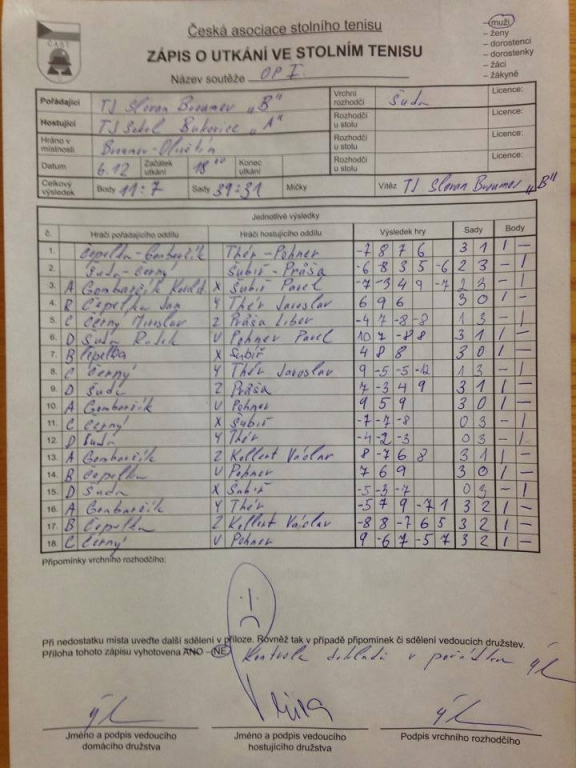 Česká asociace stolního tenisu
ČAST
ZÁPIS O UTKÁNÍ VE STOLNÍM TENISU
Název soutěže OP I.
– muži
– ženy
– dorostenci
– dorostenky
– žáci
– žákyně
Pořádající TJ Slovan Broumov „B“ Vrchní rozhodčí Šuda Licence:
Hostující TJ Sokol Bukovice „A“ Rozhodčí u stolu Licence:
Hráno v místnosti Broumov-Olivětín Rozhodčí u stolu Licence:
Datum 6.12 Začátek utkání 18 00 Konec utkání Rozhodčí u stolu Licence:
Celkový výsledek Body 11:7 Sady 39:31 Míčky Vítěz TJ Slovan Broumov „B“
Jednotlivé výsledky
č. Hráči pořádajícího oddílu Hráči hostujícího oddílu Výsledek hry Sady Body
1. Čepelka-Gombarčík Thér-Pohner -7 8 7 6 3 1 1 –
2. Šuda-Černý Šubiř-Práša -6 8 3 5 -6 2 3 – 1
3. A Gombarčík X Šubiř Pavel -7 -3 4 9 -7 2 3 – 1
4. B Čepelka Jan Y Thér Jaroslav 6 9 6 3 0 1 –
5. C Černý Miroslav Z Práša Libor -4 7 -8 -8 1 3 – 1
6. D Šuda Radek U Pohner Pavel 10 7 -8 8 3 1 1 –
7. B Čepelka X Šubiř 4 8 8 3 0 1 –
8. C Černý Y Thér Jaroslav 9 -5 -5 -12 1 3 – 1
9. D Šuda Z Práša 7 -3 4 9 3 1 1 –
10. A Gombarčík U Pohner 9 5 9 3 0 1 –
11. C Černý X Šubiř -7 -7 -8 0 3 – 1
12. D Šuda Y Thér -4 -2 -3 0 3 – 1
13. A Gombarčík Z Kollert Václav 8 -7 6 8 3 1 1 –
14. B Čepelka U Pohner 7 6 9 3 0 1 –
15. D Šuda X Šubiř -5 -3 -7 0 3 – 1
16. A Gombarčík Y Thér -5 7 9 -7 1 3 2 1 –
17. B Čepelka Z Kollert Václav -8 8 -7 6 5 3 2 1 –
18. C Černý U Pohner 9 -6 7 -5 7 3 2 1 –
Připomínky vrchního rozhodčího:
Při nedostatku místa uveďte další sdělení v příloze. Rovněž tak v případě připomínek či sdělení vedoucích družstev.
Příloha tohoto zápisu vyhotovena ANO – NE Kontrola dokladů v pořádku
Jméno a podpis vedoucího domácího družstva
Jméno a podpis vedoucího hostujícího družstva
Podpis vrchního rozhodčího